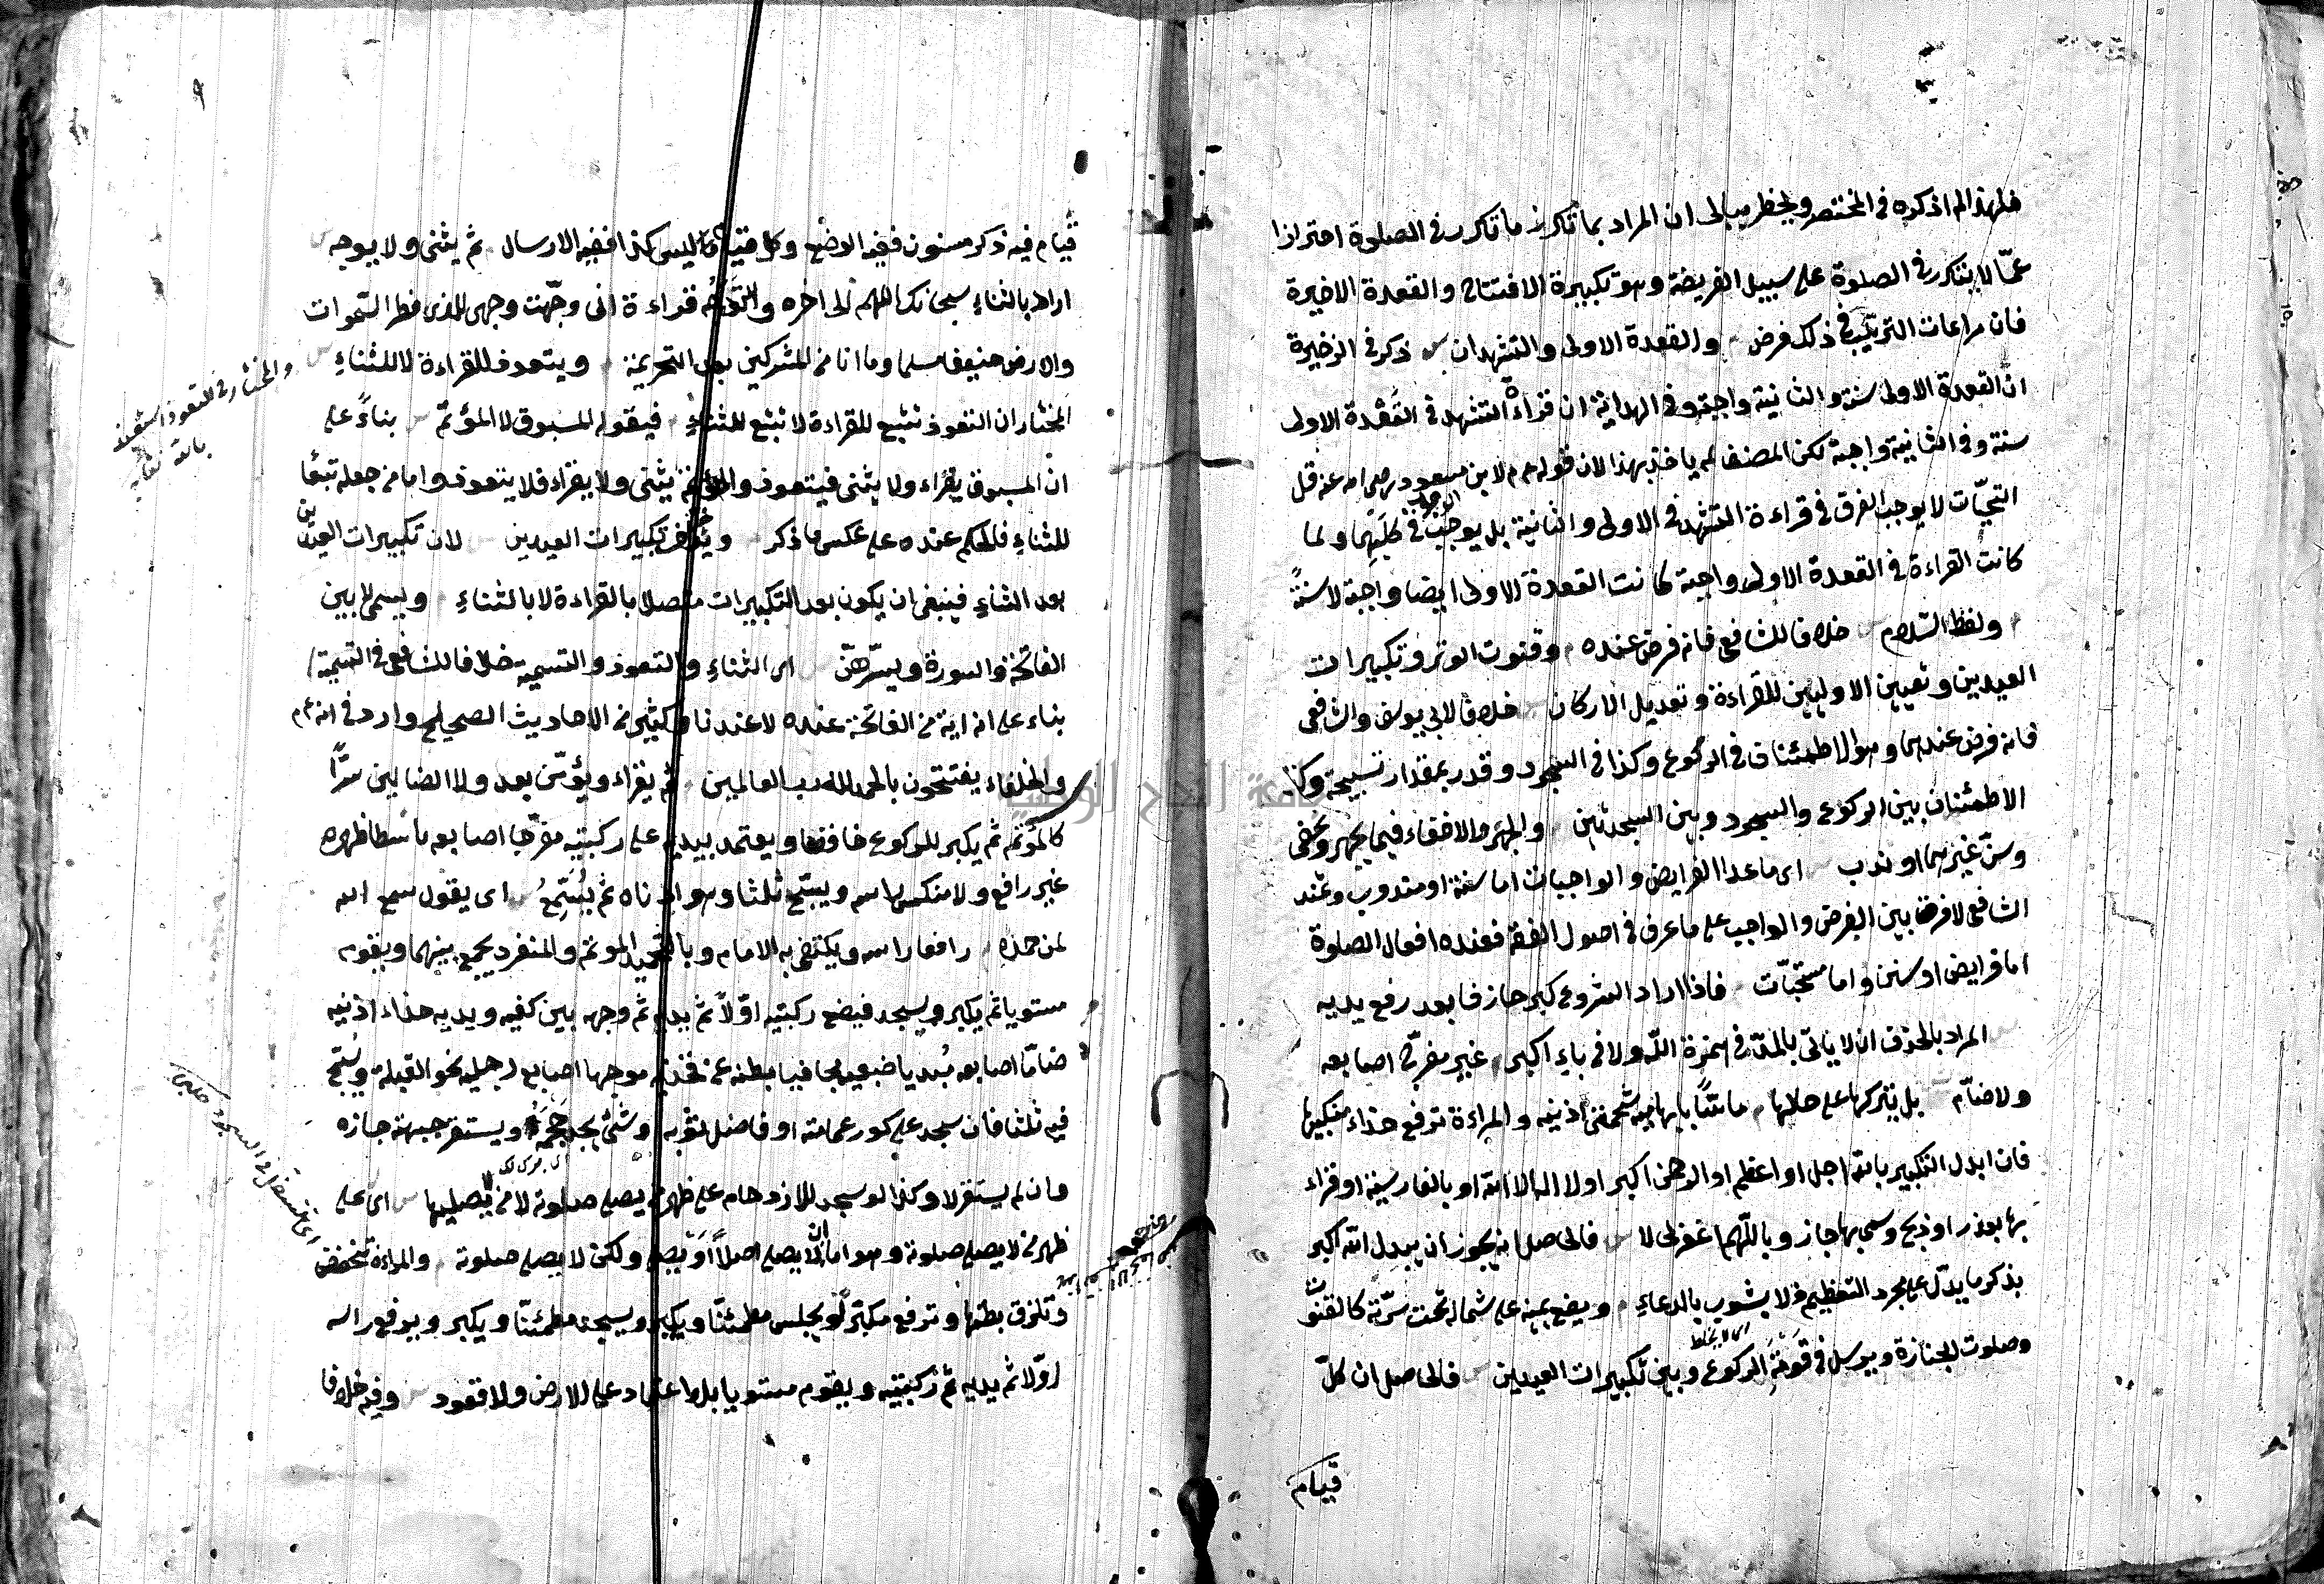 فلهذا لم اذكره في المختصر ويخطر ببالي ان المراد بما تكرر ما تكرر في الصلوة احترازا
عمّا لا يتكرر في الصلوة على سبيل الفريضة وهو تكبيرة الافتتاح والقعدة الاخيرة
فان مراعات الترتيب في ذلك فرض والقعدة الاولى والتشهدان ذكر في الذخيرة
انّ القعدة الاولى سنة والثانية واجبة وفي الهداية ان قراءة التشهد في القعدة الاولى
سنة وفي الثانية واجبة لكن المصنف لم ياخذ بهذا لان قوله عم لابن مسعود رضى الله عنه قل
التحيّات لا يوجب الفرق في قراءة التشهد في الاولى والثانية بل يوجب الوجوب في كليهما ولما
كانت القراءة في القعدة الاولى واجبة كانت القعدة الاولى ايضا واجبة لا سنةً
ولفظ السّلام خلافا للشافعي فانه فرض عنده وقنوت الوتر وتكبيرات
العيدين وتعيين الاوليين للقراءة وتعديل الاركان خلافا لابي يوسف والشافعي
فانه فرض عندهما وهو الاطمئنان في الركوع وكذا في السجود وقدر بمقدار تسبيحة وكذا
الاطمئنان بين الركوع والسجود وبين السجدتين والجهر والاخفاء فيما يجهر ويخفى
وسنّ غيرهما او ندب اى ما عدا الفرايض والواجبات اما سنة او مندوب وعند
الشافعي لا فرق بين الفرض والواجب على ما عرف في اصول الفقه فعنده افعال الصلوة
اما فرايض او سنن واما مستحبّات فاذا اراد الشروع كبر حاذفا بعد رفع يديه
المراد بالحذف ان لا ياتى بالمدّ في همزة اللّه ولا في باء اكبر غير مفرّج اصابعه
ولا ضامّ بل يتركها على حالها ماسّاً بابهاميه شحمتى اذنيه والمراءة ترفع حذاء منكبيها
فان ابدل التكبير بالله اجل او اعظم او الرحمن اكبر او لا اله الا الله او بالفارسية او قراء
بها بعذر او ذبح وسمى بها جاز وباللّهم اغفرلى لا فالحاصل انه يجوز ان يبدل الله اكبر
بذكر ما يدلّ على مجرد التعظيم فلا يشوب بالدعاء ويضع يمينه على شماله تحت سرّته كالقنوت
اى لا يخلط
وصلوت الجنازة ويرسل في قومَةِ الركوع وبين تكبيرات العيدين فالحاصل ان كلّ
قيام
٩
قيام فيه ذكر مسنون ففيه الوضع وكل قيام ليس كذا ففيه الارسال ثم يثنى ولا يوجه
اراد بالثناءِ سبحانك اللهم الى اخره والتوجّه قراءة انى وجّهت وجهى للذى فطر السّموات
والارض حنيفا مسلما وما انا من المشركين بعد التحريمة ويتعوذ للقراءة لا للثناءِ
المختار ان التعوذ تتبع للقراءة لا تتبع للثناءِ فيقوله المسبوق لا المؤتمّ بناءً على
انّ المسبوق يقراء ولا يثنى فيتعوذ والمؤتمّ يثنى ولا يقراء فلا يتعوذ واما من جعله تبعًا
للثناءِ فالحكم عنده على عكس ما ذكر ويؤخر تكبيرات العيدين لان تكبيرات العيدين
بعد الثناءِ فينبغى ان يكون بعد التكبيرات متصلا بالقراءة لا بالثناءِ ويسمى لا بين
الفاتحة والسورة ويسّرهنّ اى الثناءِ والتعوذ والتسمية خلافا للشافعى في التسمية
بناء على انه اية من الفاتحة عنده لا عندنا وكثير من الاحاديث الصحاح وارد في انه عم
والخلفاء يفتتحون بالحمد لله رب العالمين ثم يقراء ويؤمّن بعد ولا الضالين سرًّا
كالمؤتم ثم يكبر للركوع خافضا ويعتمد بيديه على ركبتيه مفرّجا اصابعه باسطا ظهره
غير رافع ولا منكس راسه ويسبّح ثلثا وهو ادناه ثم يُسَمِّعُ اى يقول سمع الله
لمن حمده رافعا راسه ويكتفى به الامام وبالتحميد الموتم والمنفرد يجمع بينهما ويقوم
مستويا ثم يكبر ويسجد فيضع ركبتيه اوّلاً ثم يديه ثم وجهه بين كفيه ويديه حذاء اذنيه
ضامّا اصابعه مُبديا ضبعيه مجافيا بطنه عن فخذيه موجها اصابع رجليه نحو القبلة ويُسبّح
فيه ثلثا فان سجد على كور عمامته او فاضل ثوبه او شئ يجد حجمه ويستقر جبهته جازه
وان لم يستقر لا وكذا لو سجد للازدحام على ظهر من يصلى صلوته لا من لا يصليها اى على
ظهر من لا يصلى صلوته وهو اما ان لا يصلى اصلاً او يصلى ولكن لا يصلى صلوته والمراءة تنخفض
وتلزق بطنها وترفع مكبرً ويجلس مطمئنّا ويكبر ويسجد مطمئنّا ويكبر ويرفع راسه
اوّلا ثم يديه ثم ركبتيه ويقوم مستويا بلا اعتماد على الارض ولا قعود وفيه خلاف
والمختار في التعوذ استعيذ
بالله